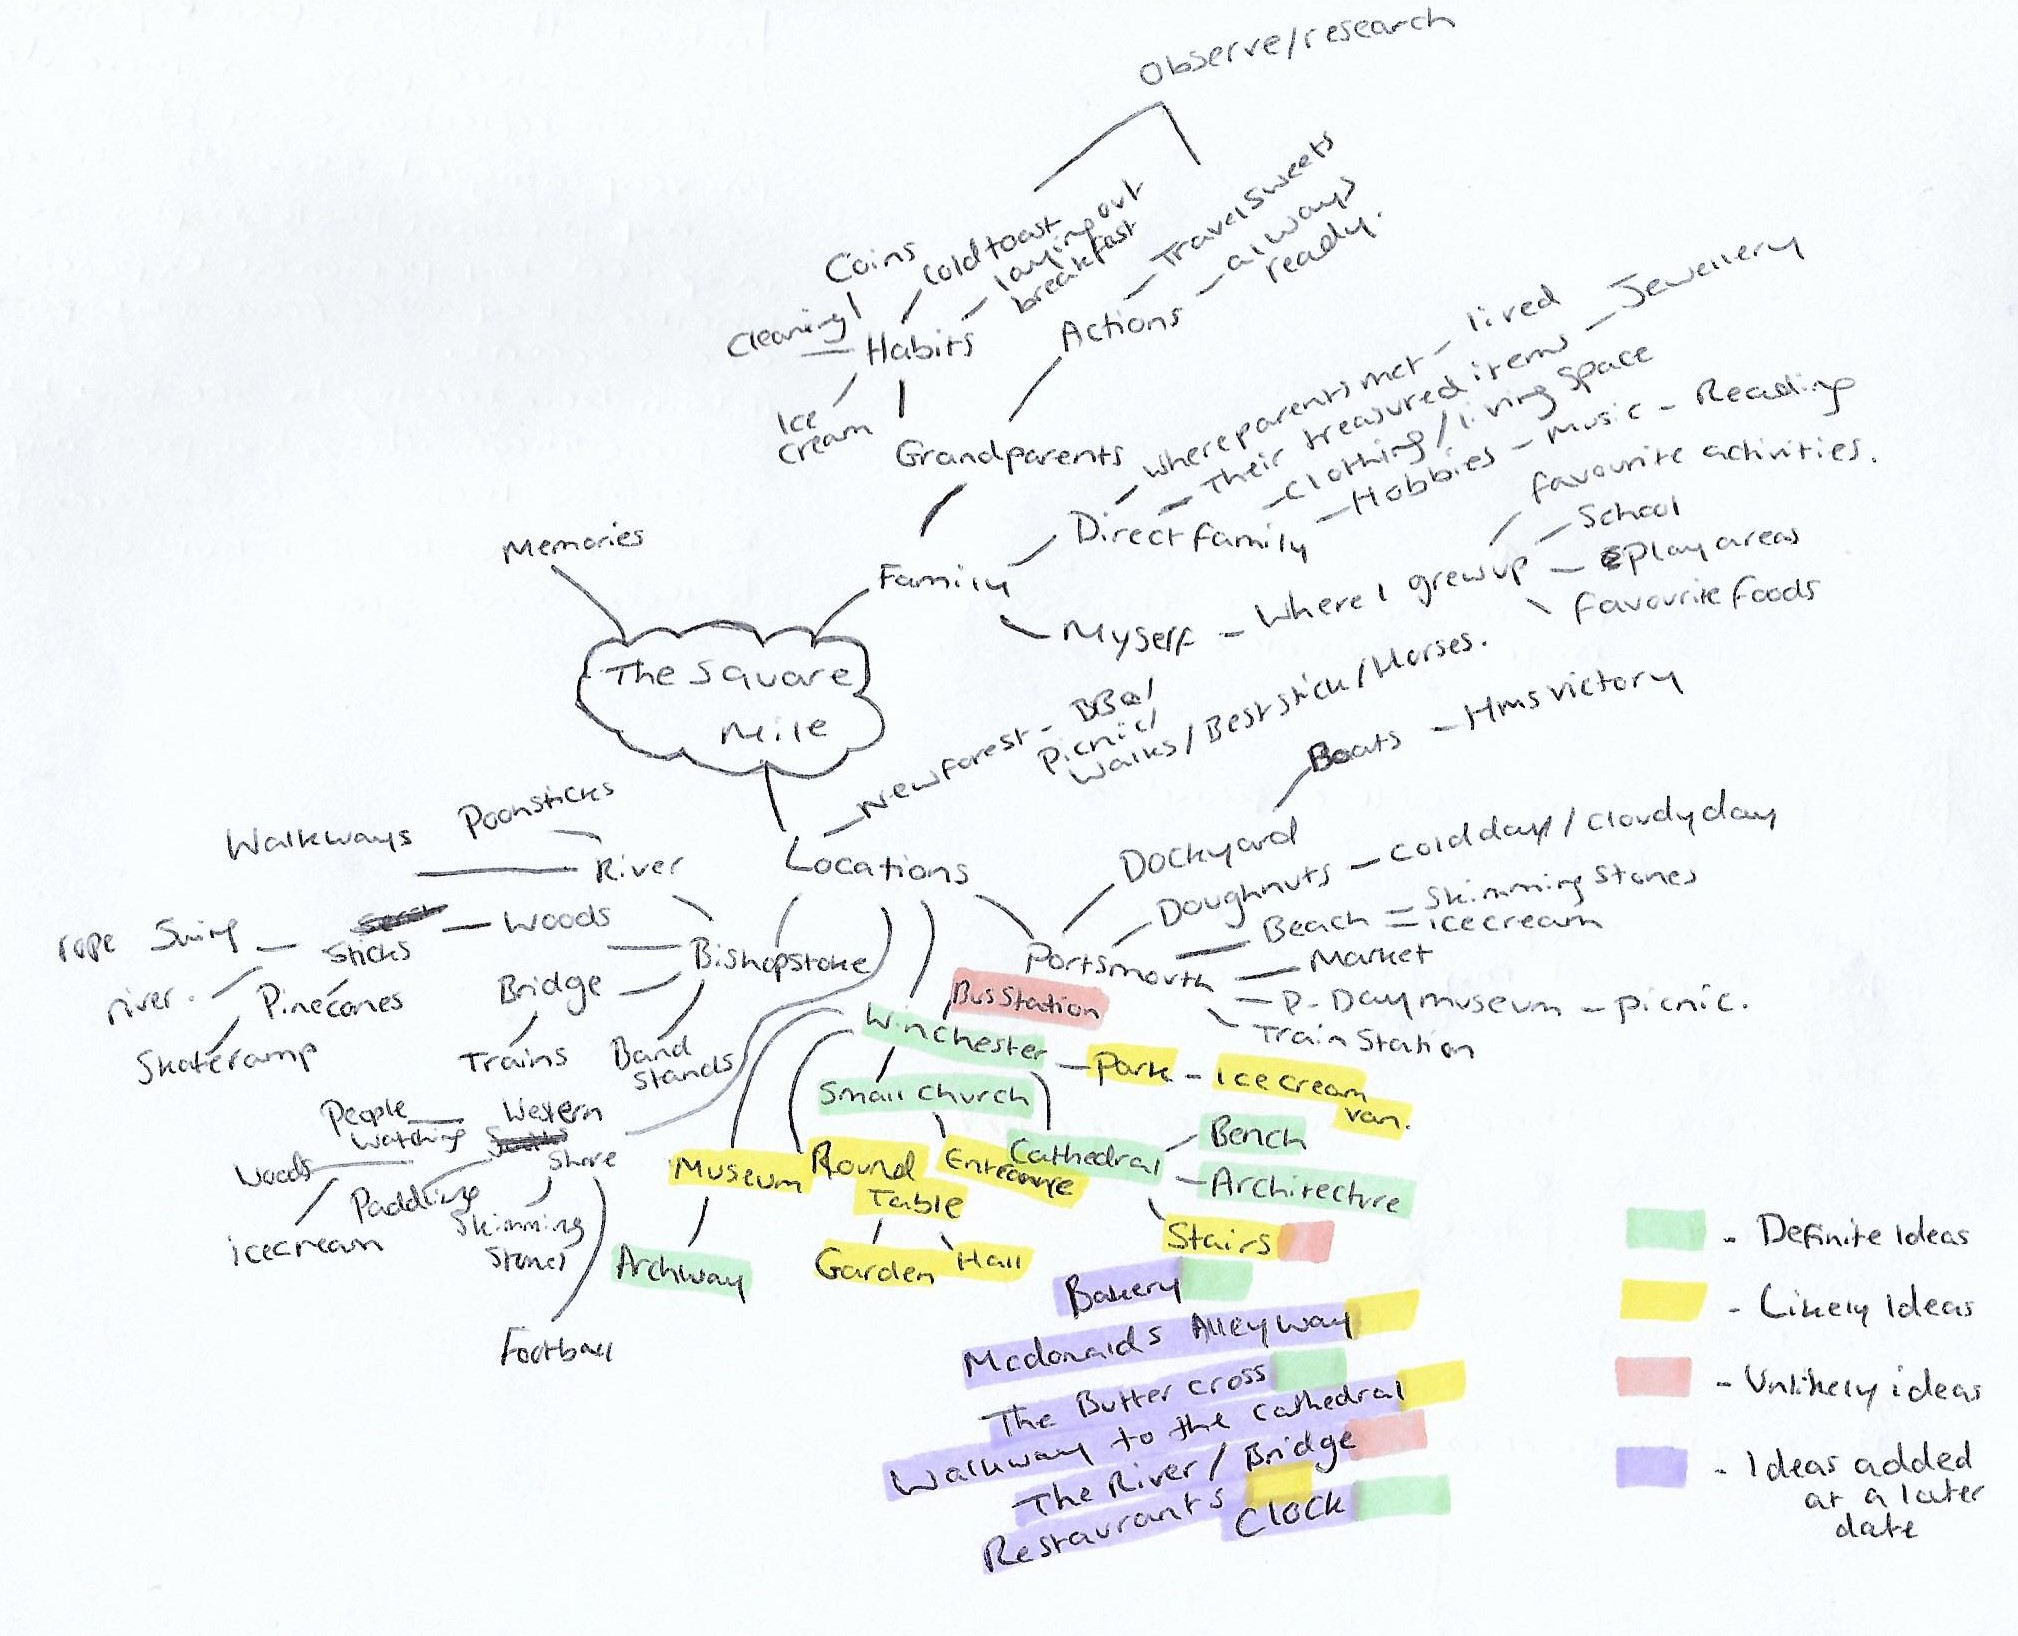 Observe/research
Coins
Cold toast
laying out
breakfast
Travel sweets
always
ready.
Cleaning
Habits
Actions
Ice
cream
Grandparents
where parents met - lived
Their treasured items - Jewellery
Clothing / living space
Hobbies - Music - Reading
Direct family
favourite activities.
School
play areas
favourite foods
Memories
Family
Myself - Where I grew up
The Square
Mile
New Forest - BBQ/
Picnic/
Walks / Best stick / Horses.
Boats - Hms victory
Dockyard
Doughnuts - cold day / cloudy day
Beach = Skimming Stones
icecream
Market
D-Day museum - picnic.
Train Station
Portsmouth
Locations
Poohsticks
Walkways
River
rope Swing - Sticks - Woods
river.
Pinecones
Skateramp
Bishopstoke
Bridge
Trains
Band
Stands
People
watching
Western
Shore
Woods
Paddling
Skimming
Stones
icecream
Football
Bus Station
Winchester - Park - Ice cream
van.
Small Church
Cathedral
Bench
Architecture
Stairs
Museum
Round
Table
Entrance
Archway
Garden
Hall
Bakery
Mcdonalds Alleyway
The Butter cross
Walkway to the Cathedral
The River / Bridge
Restaurants
Clock
- Definite Ideas
- Likely Ideas
- Unlikely ideas
- Ideas added
at a later
date